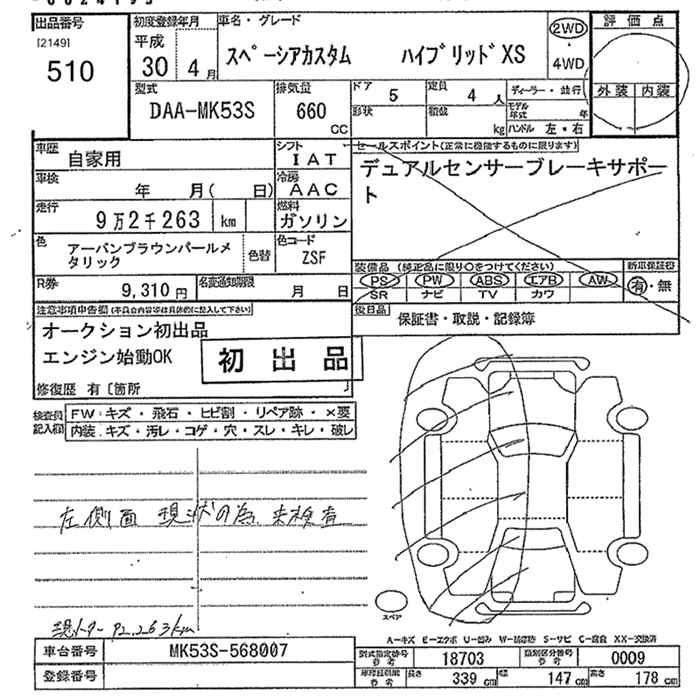 出品番号 [2149] 510
初度登録年月 平成 30年 4月
車名・グレード
スペーシアカスタム ハイブリッドXS
2WD・4WD
評価点
外装 内装
型式 DAA-MK53S
排気量 660 CC
ドア 5
定員 4人
形状
積載 kg
ディーラー・並行
モデル年式 年
ハンドル 左・右
車歴 自家用
シフト IAT
車検 年 月( 日)
冷房 AAC
走行 9万2千263 km
燃料 ガソリン
色 アーバンブラウンパールメタリック
色替
色コード ZSF
R券 9,310円
名変通知期限 月 日
セールスポイント(正常に機能するものに限ります)
デュアルセンサーブレーキサポート
装備品(純正品に限り○をつけてください)
新車保証書
PS PW ABS エアB AW 有・無
SR ナビ TV カワ
後日品 保証書・取説・記録簿
注意事項申告欄(不具合内容等は具体的に記入して下さい)
オークション初出品
エンジン始動OK
初出品
修復歴 有〔箇所
検査員記入欄
FW:キズ・飛石・ヒビ割・リペア跡・×要
内装:キズ・汚レ・コゲ・穴・スレ・キレ・破レ
左側面 現状の為、未検査
スペア
A-キズ E-エクボ U-凹み W-補修跡 S-サビ C-腐食 XX-交換済
車台番号 MK53S-568007
登録番号
型式指定番号 参考 18703
類別区分番号 参考 0009
参考 長さ 339 cm 幅 147 cm 高さ 178 cm